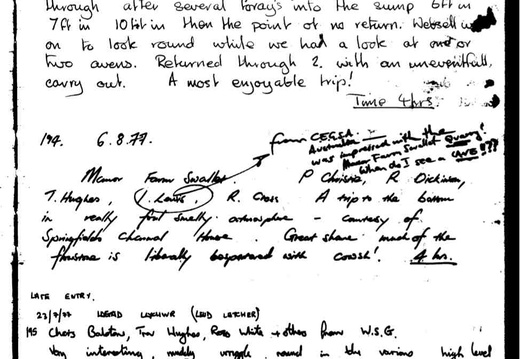 through after several forays into the sump 6ft in
7ft in 10ft in then the point of no return. Went
on to look round while we had a look at one or
two avens. Returned through 2, with an uneventfull
carry out. A most enjoyable trip!
Time 4hrs.
from CEGSA
Australia
was impressed with the
Manor Farm Swallet Quarry!
When do I see a CAVE!!??
194. 6.8.77.
Manor Farm Swallet. P Christie, R. Dickinson,
T. Hughes, I. Lewis, R. Cross A trip to the bottom
in really foul smelly atmosphere - courtesy of
Springfields Channel House. Great shame much of the
flowstone is liberally bespattered with cowsh! 4 hrs.
LATE ENTRY.
23/7/77 (LEAD LETCHER)
195 Chots Balston, Trev Hughes, Ross White + others from W.S.G.
Very interesting, muddy wriggle round in the various high level